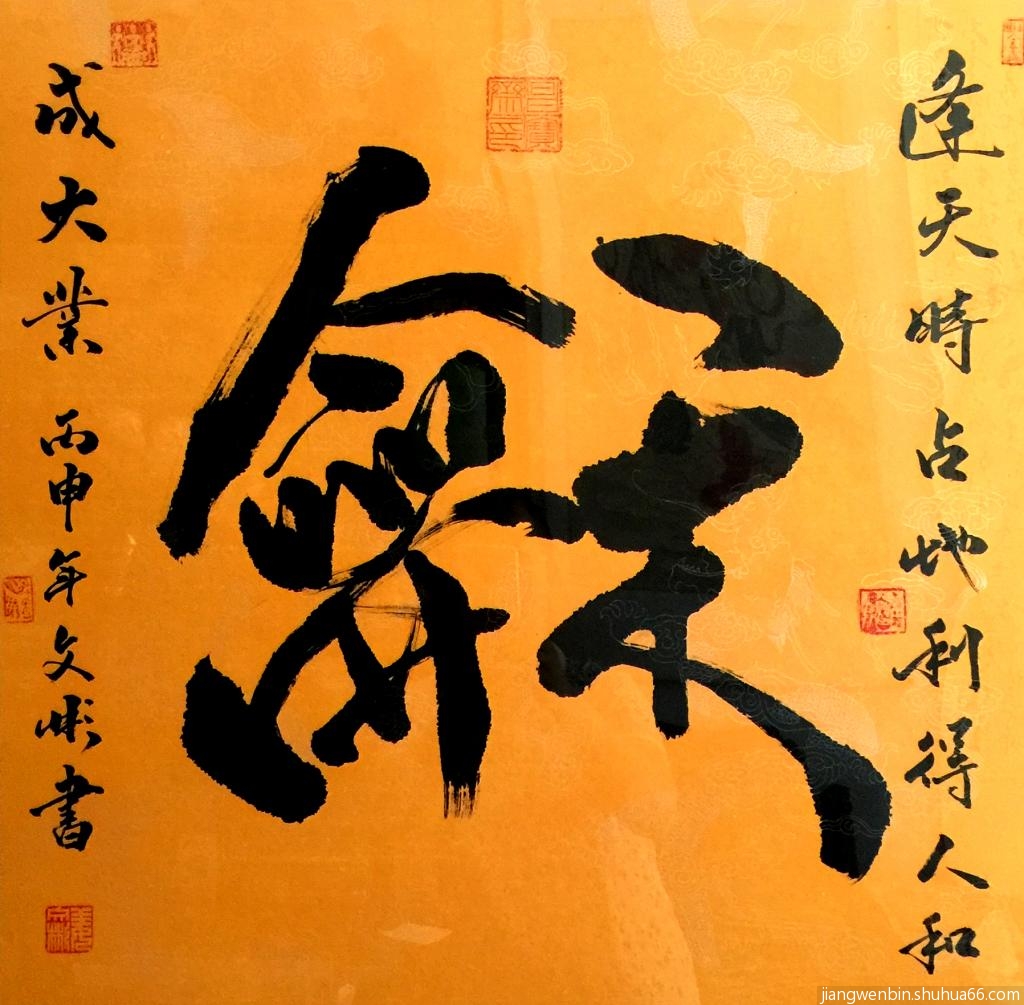 逢天時占地利得人和
龢
成大業 丙申年文彬書
jiangwenbin.shuhua66.com